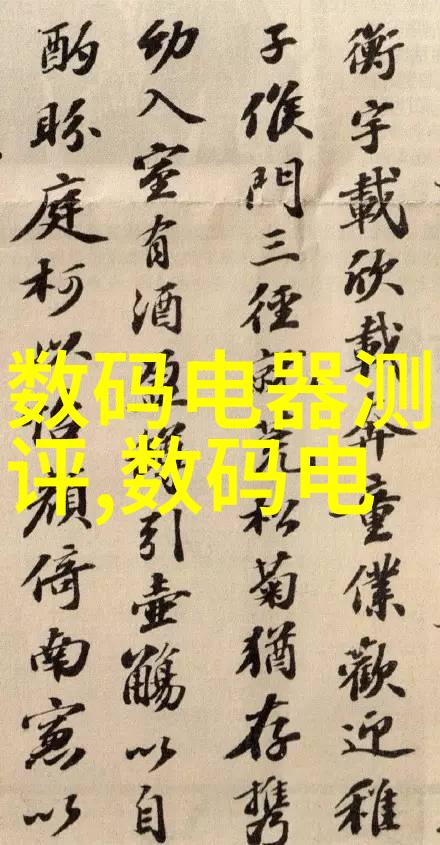 衡宇載欣載奔童僕歡迎稚
子候門三徑就荒松菊猶存携
幼入室有酒盈樽引壺觴以自
酌眄庭柯以怡顔倚南窓以
数码电器测
评,数码电